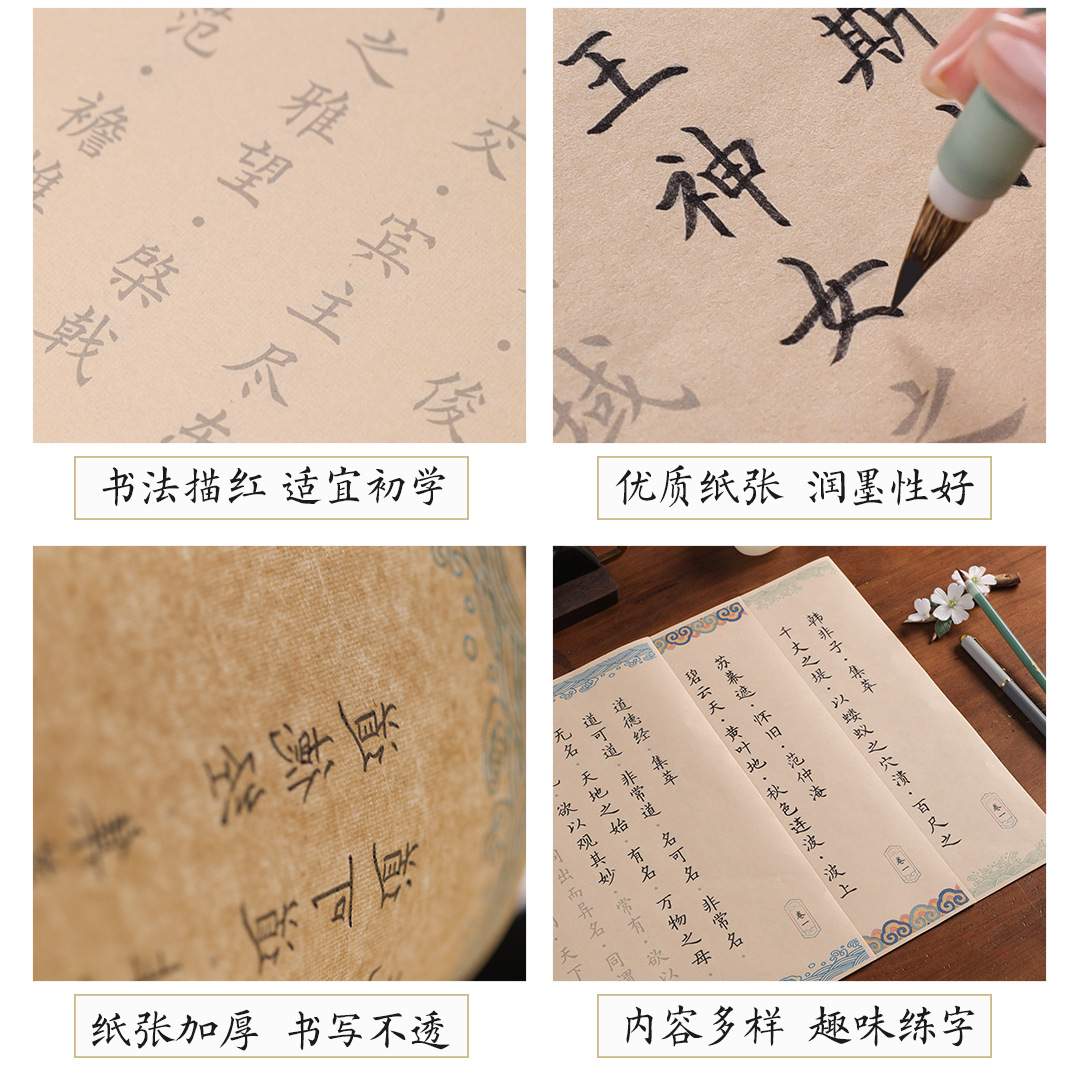 ·俊
交·宾主尽东
之雅望·棨戟
范·襜帷
斯
王神女之
域
书法描红 适宜初学
优质纸张 润墨性好
韩非子·集萃
千丈之堤·以蝼蚁之穴溃·百尺之
卷一
苏幕遮·怀旧·范仲淹
碧云天·黄叶地·秋色连波·波上
卷一
道德经·集萃
道可道·非常道·名可名·非常名·
无名·天地之始·有名·万物之母·
欲以观其妙·常有·欲以
出而异名·同谓
天下
卷一
纸张加厚 书写不透
内容多样 趣味练字